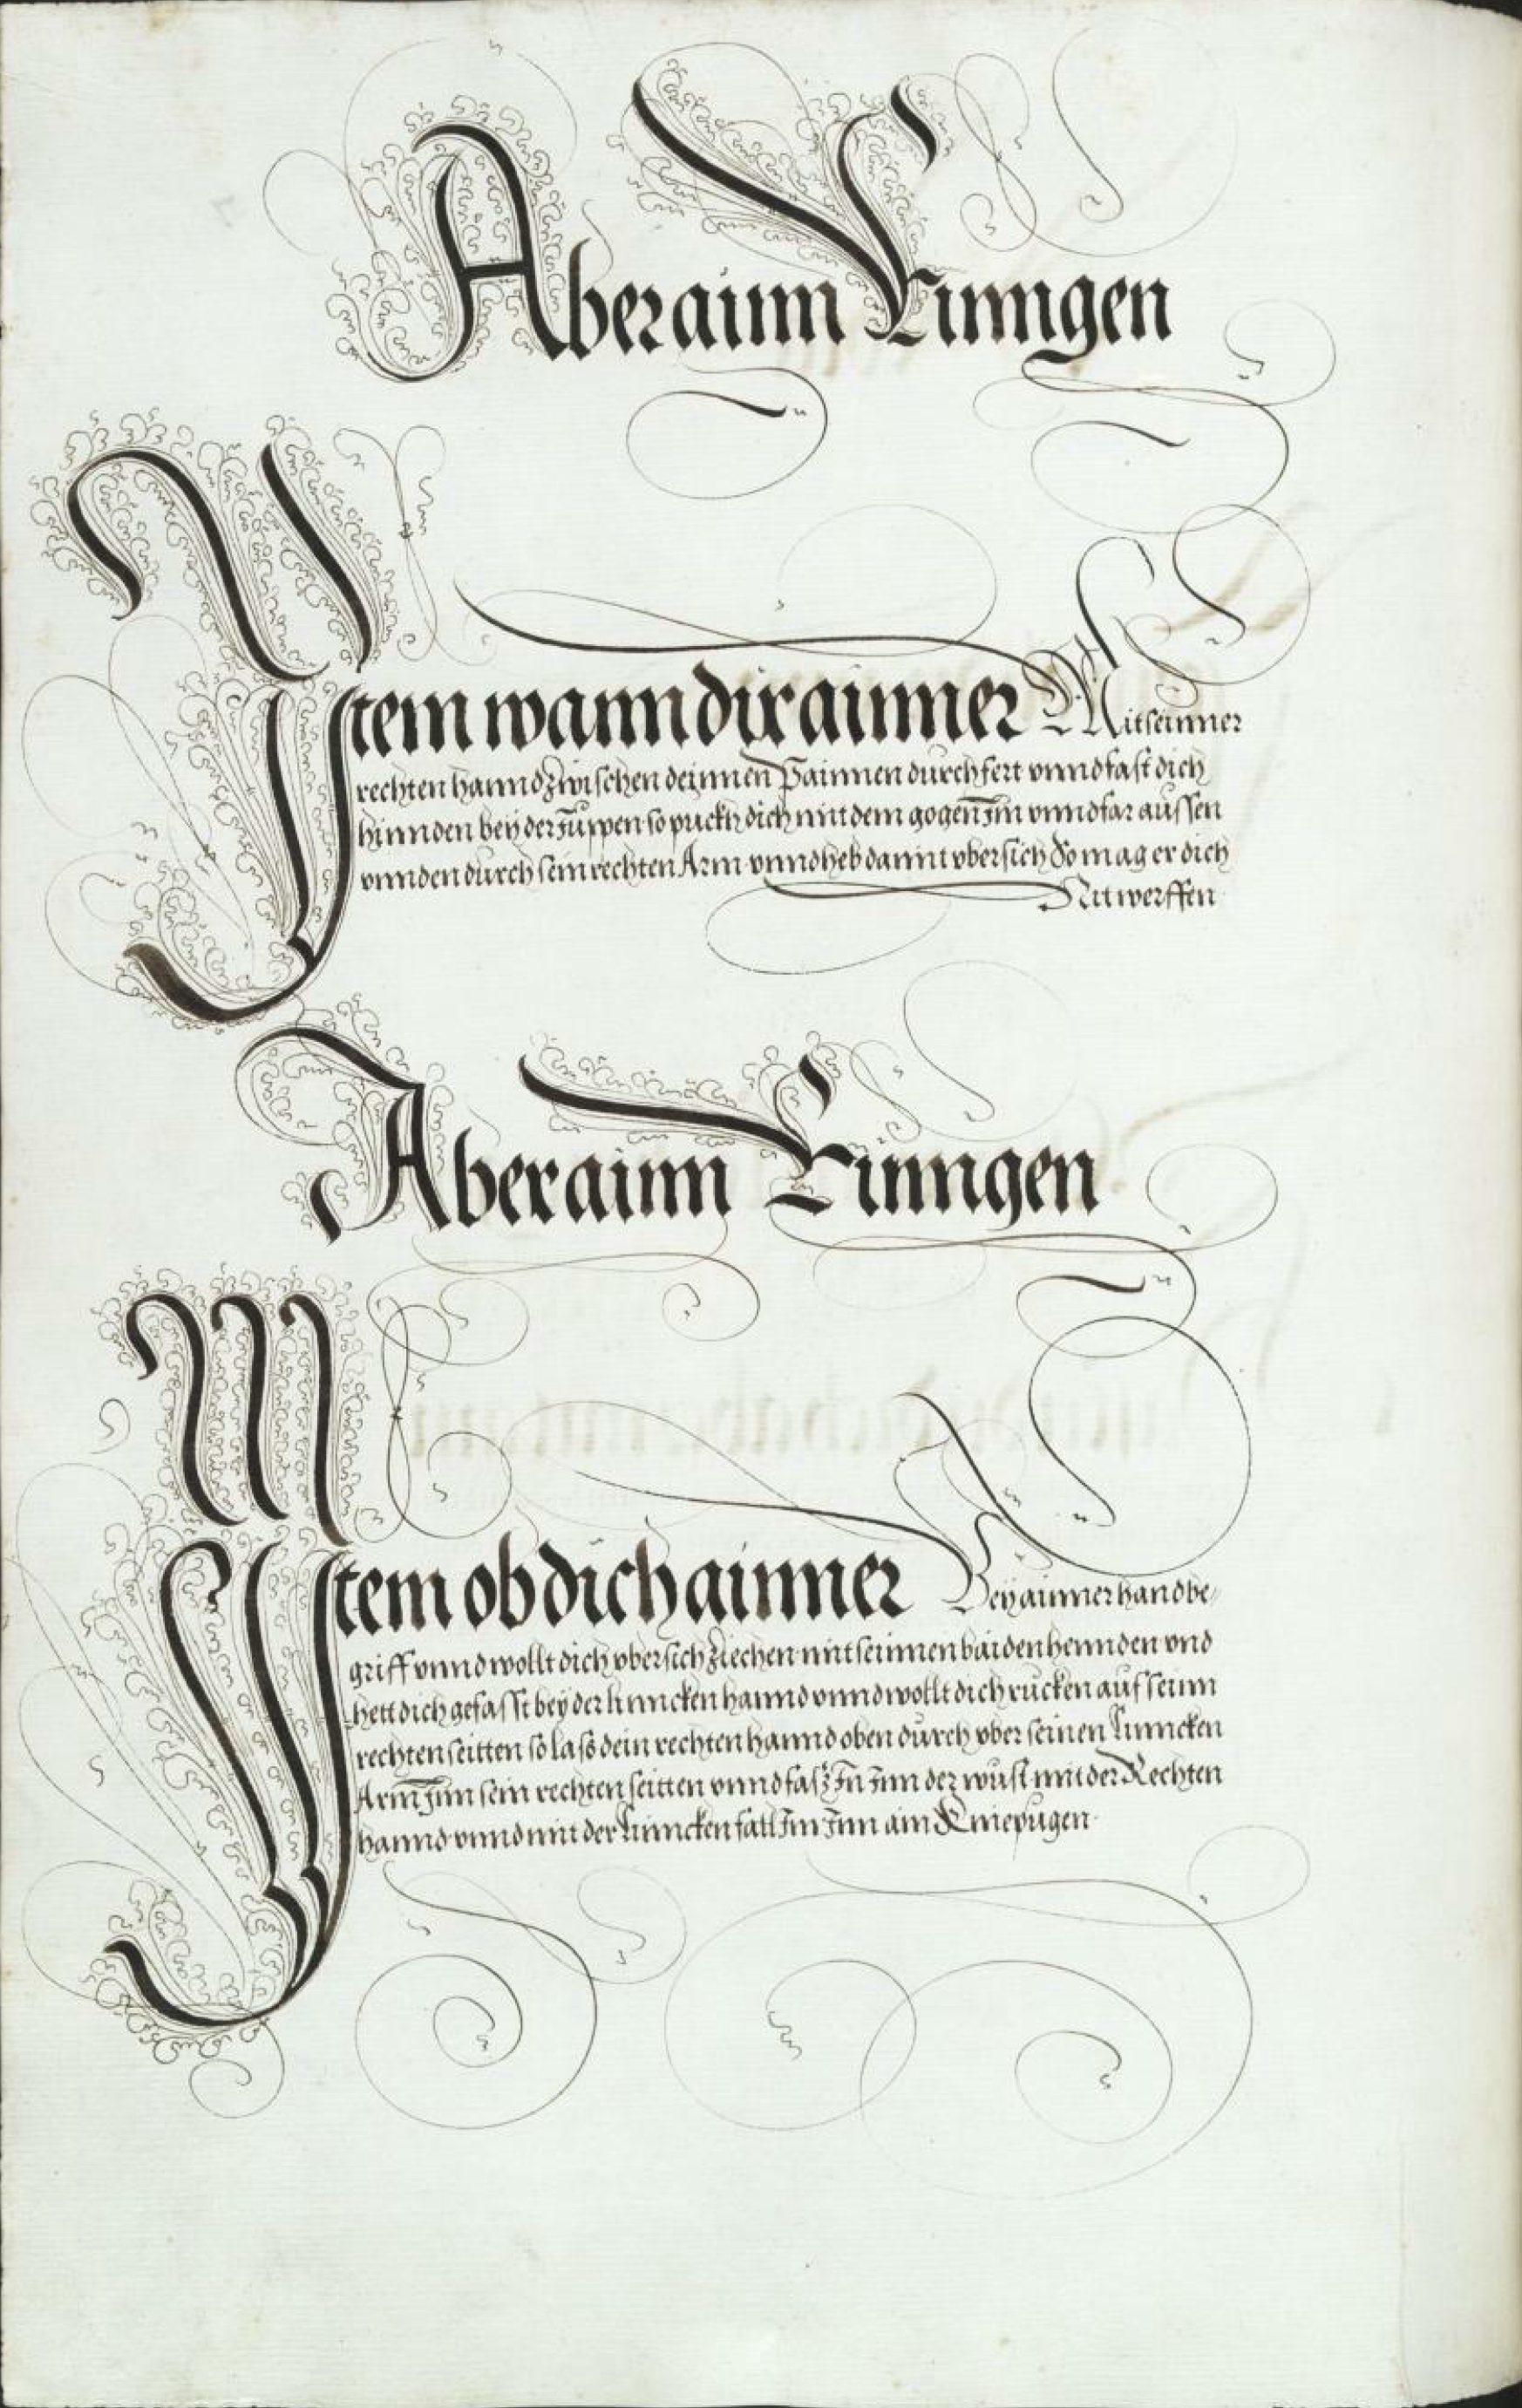 Aber ainn Rinngen
Ittem wann dir ainner Mit seinner
rechten hannd zwischen deinnen Painnen durchfert vnnd fast dich
hinnden bey der Juppen so puckh dich mit dem gogen Im vnnd far aussen
vnnden durch sein rechten Arm vnnd heb damit vbersich So mag er dich
Nit werffen
Aber ainn Rinngen
Ittem ob dich ainner Bey ainner hand be„
griff vnnd wollt dich vbersich ziechen mit seinnen baiden hennden vnd
hett dich gefasst bey der linncken hannd vnnd wollt dich rucken auf seinn
rechten seitten so lass dein rechten hannd oben durch vber seinen linncken
Arm Jnn sein rechten seitten vnnd fass Jn Jnn der wüst mit der Rechten
hannd vnnd mit der linncken fall Im Jnn ain Kniepugen